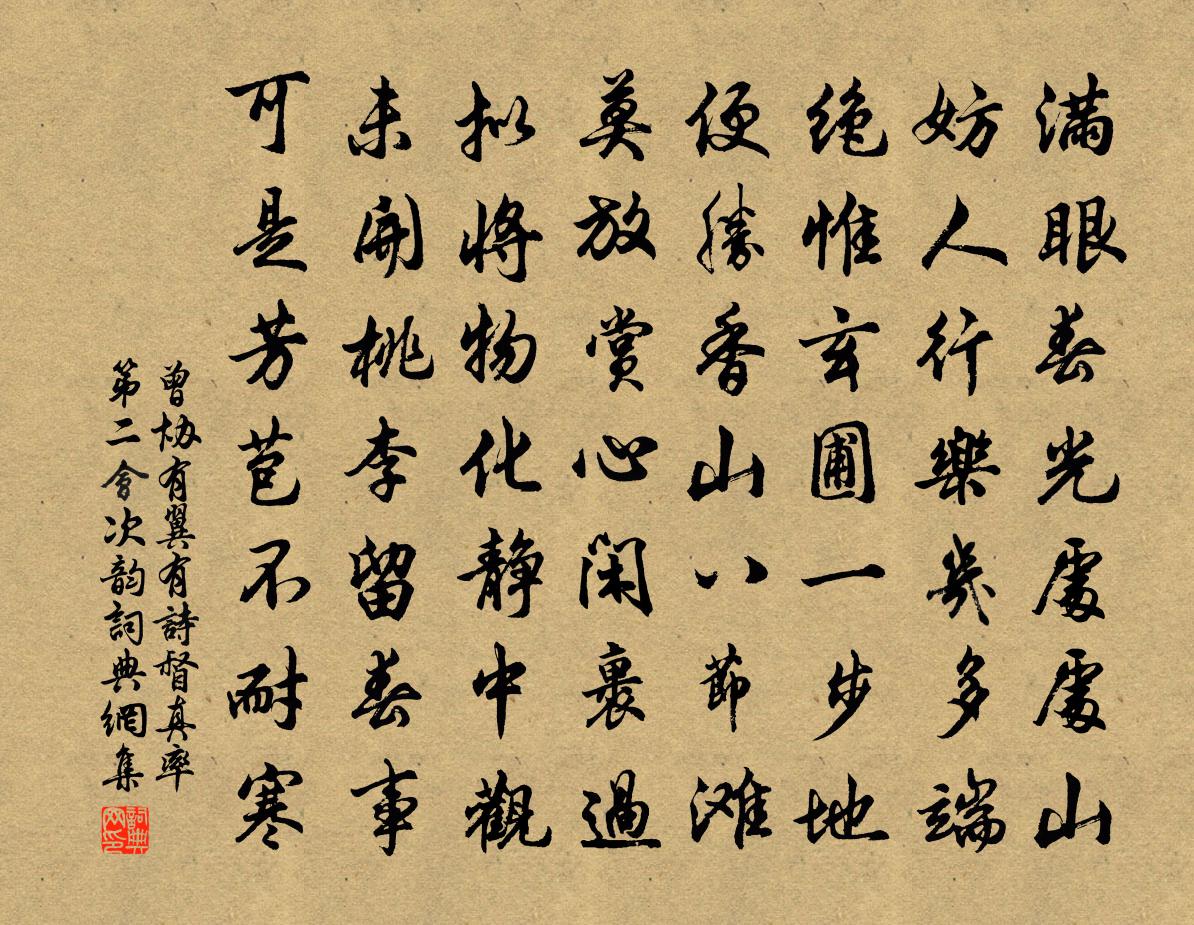 满眼春光處處山
妨人行樂幾多端
绝惟玄圃一步地
便勝香山八節滩
莫放賞心闲裏過
拟將物化静中觀
未開桃李留春事
可是芳苞不耐寒
曾协有翼有詩督真率
第二會次韵詞典網集
詞典网印